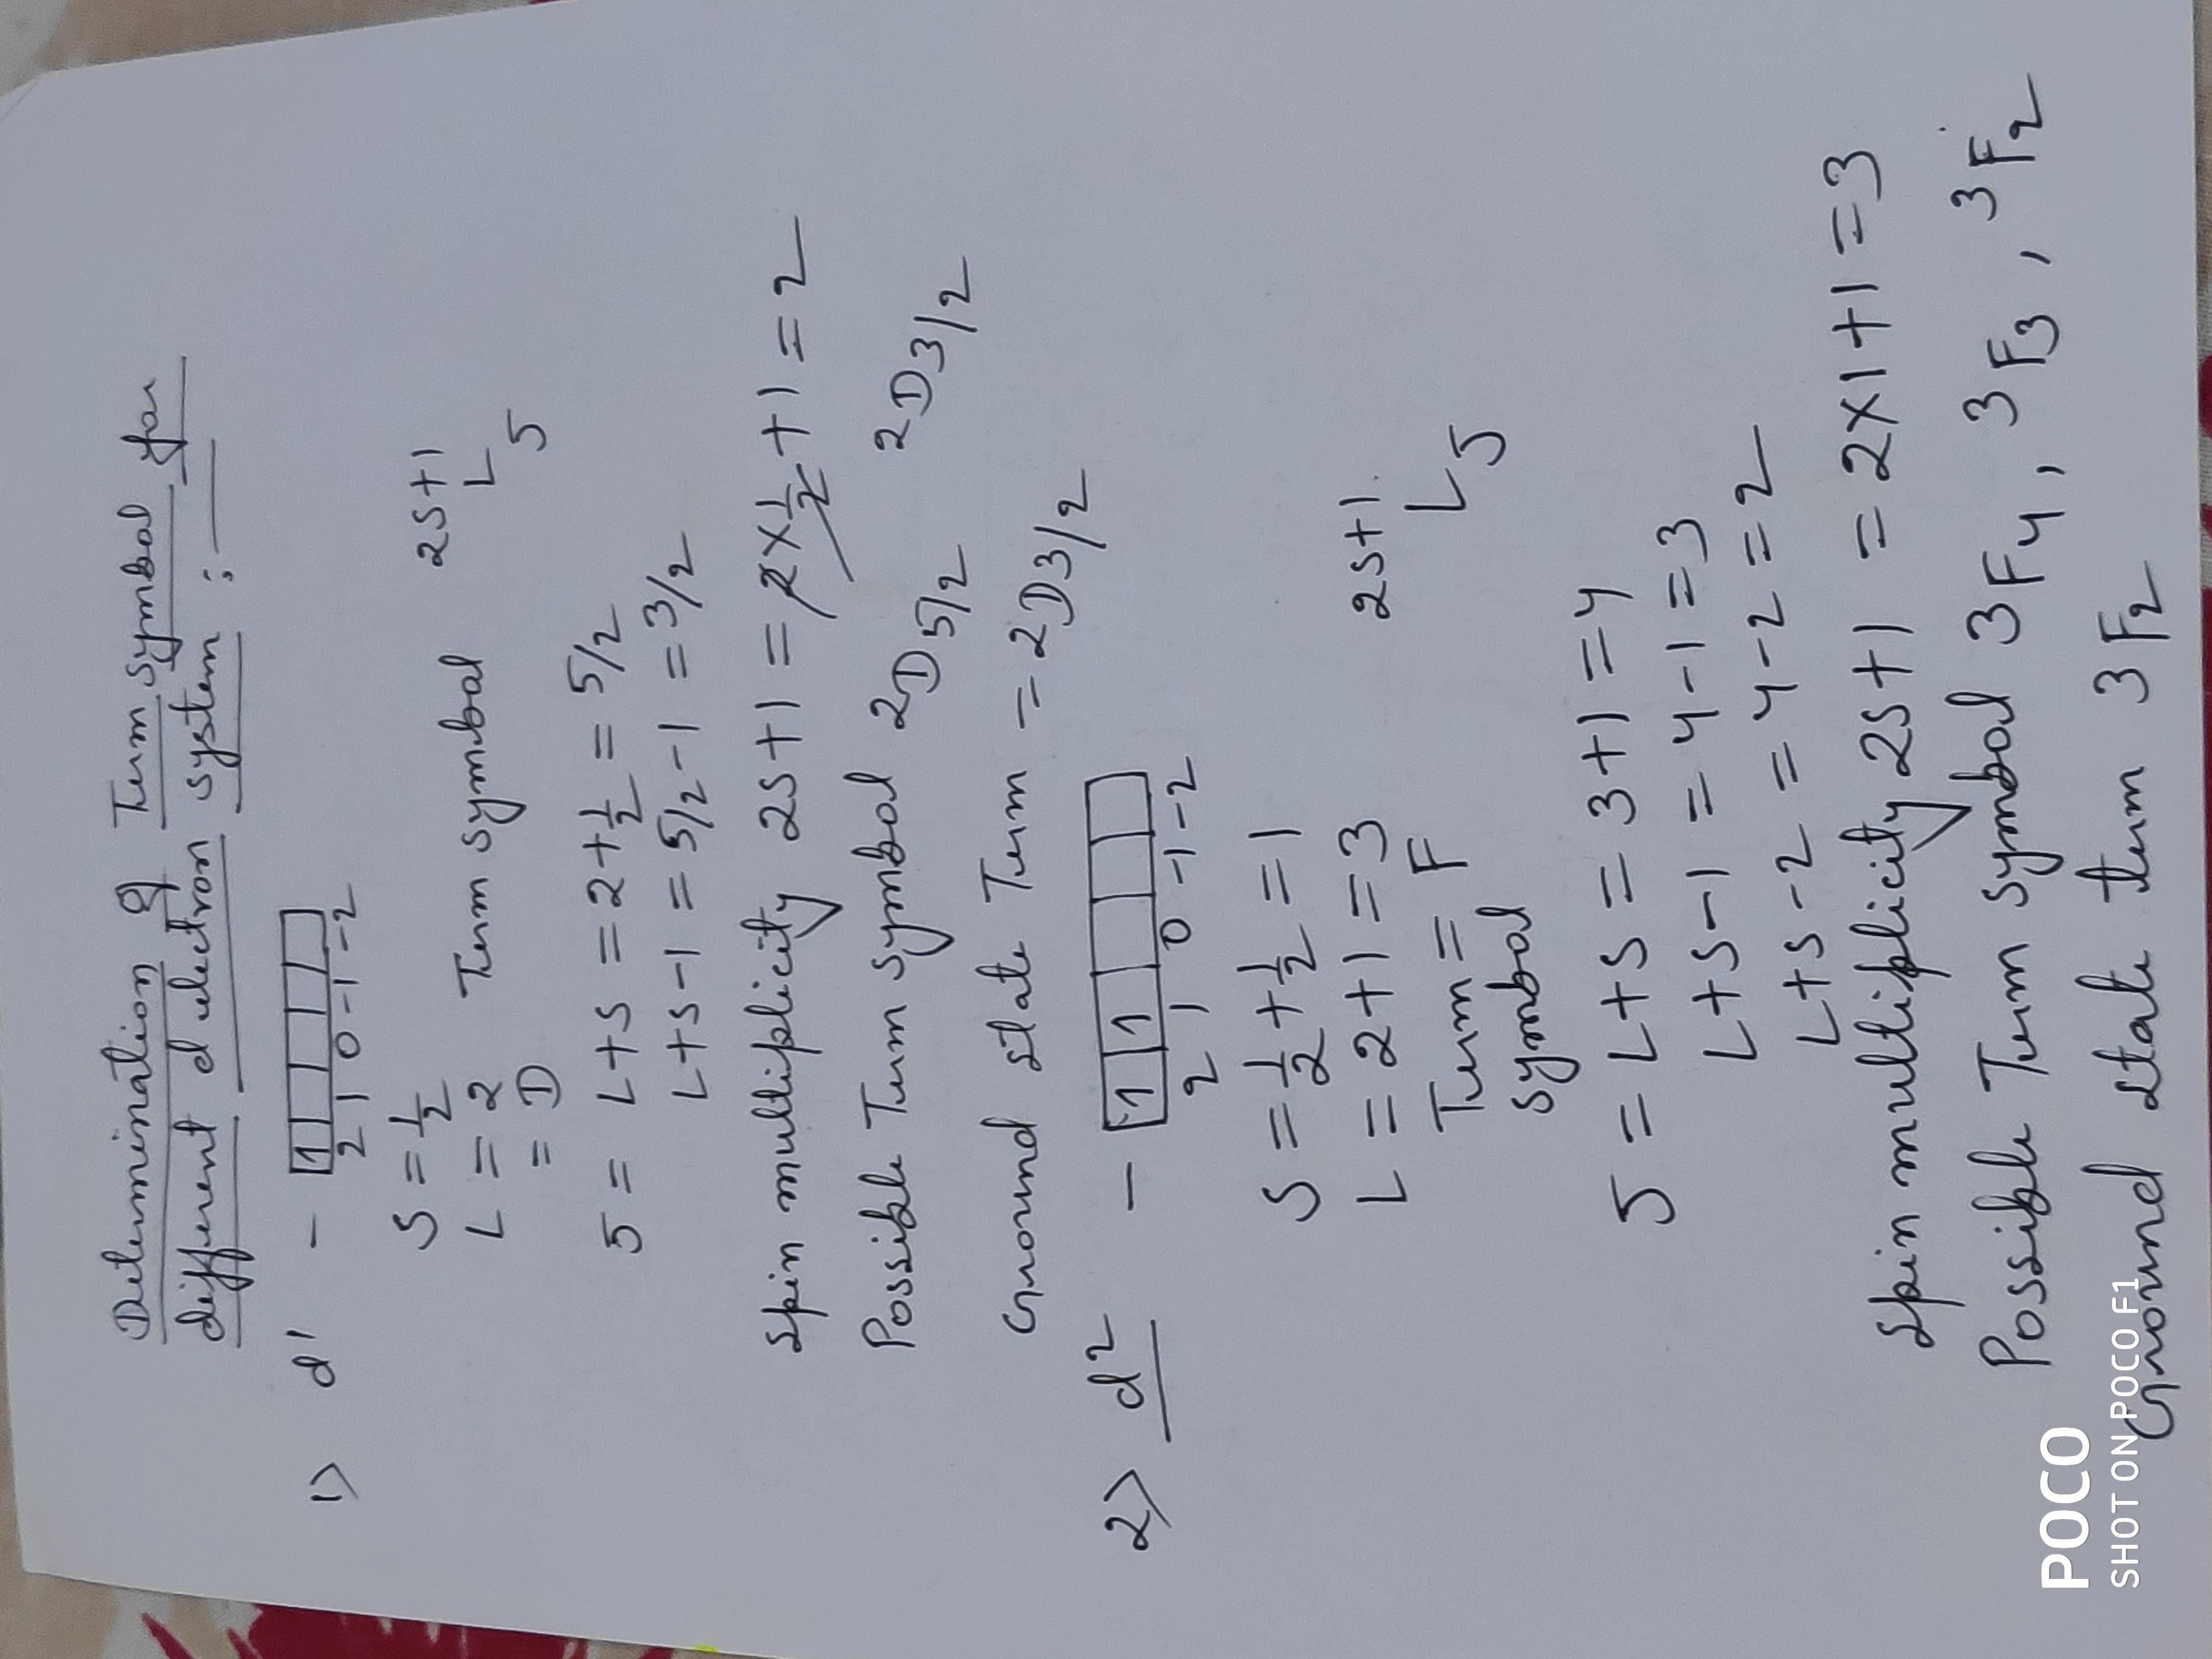 Determination of Term symbol for
different d electron system :
1) d¹ - 1
2 1 0 -1 -2
S = 1/2
L = 2 Term symbol 2S+1
= D L
J
J = L+S = 2+1/2 = 5/2
L+S-1 = 5/2-1 = 3/2
spin multiplicity 2S+1 = 2×1/2+1 = 2
Possible Term symbol 2D5/2 2D3/2
Ground state Term = 2D3/2
2) d² - 1 1
2 1 0 -1 -2
S = 1/2+1/2 = 1
L = 2+1 = 3 2S+1
Term = F L
symbol J
J = L+S = 3+1 = 4
L+S-1 = 4-1 = 3
L+S-2 = 4-2 = 2
spin multiplicity 2S+1 = 2×1+1 = 3
Possible Term symbol 3F4, 3F3, 3F2
Ground state term 3F2
POCO
SHOT ON POCO F1